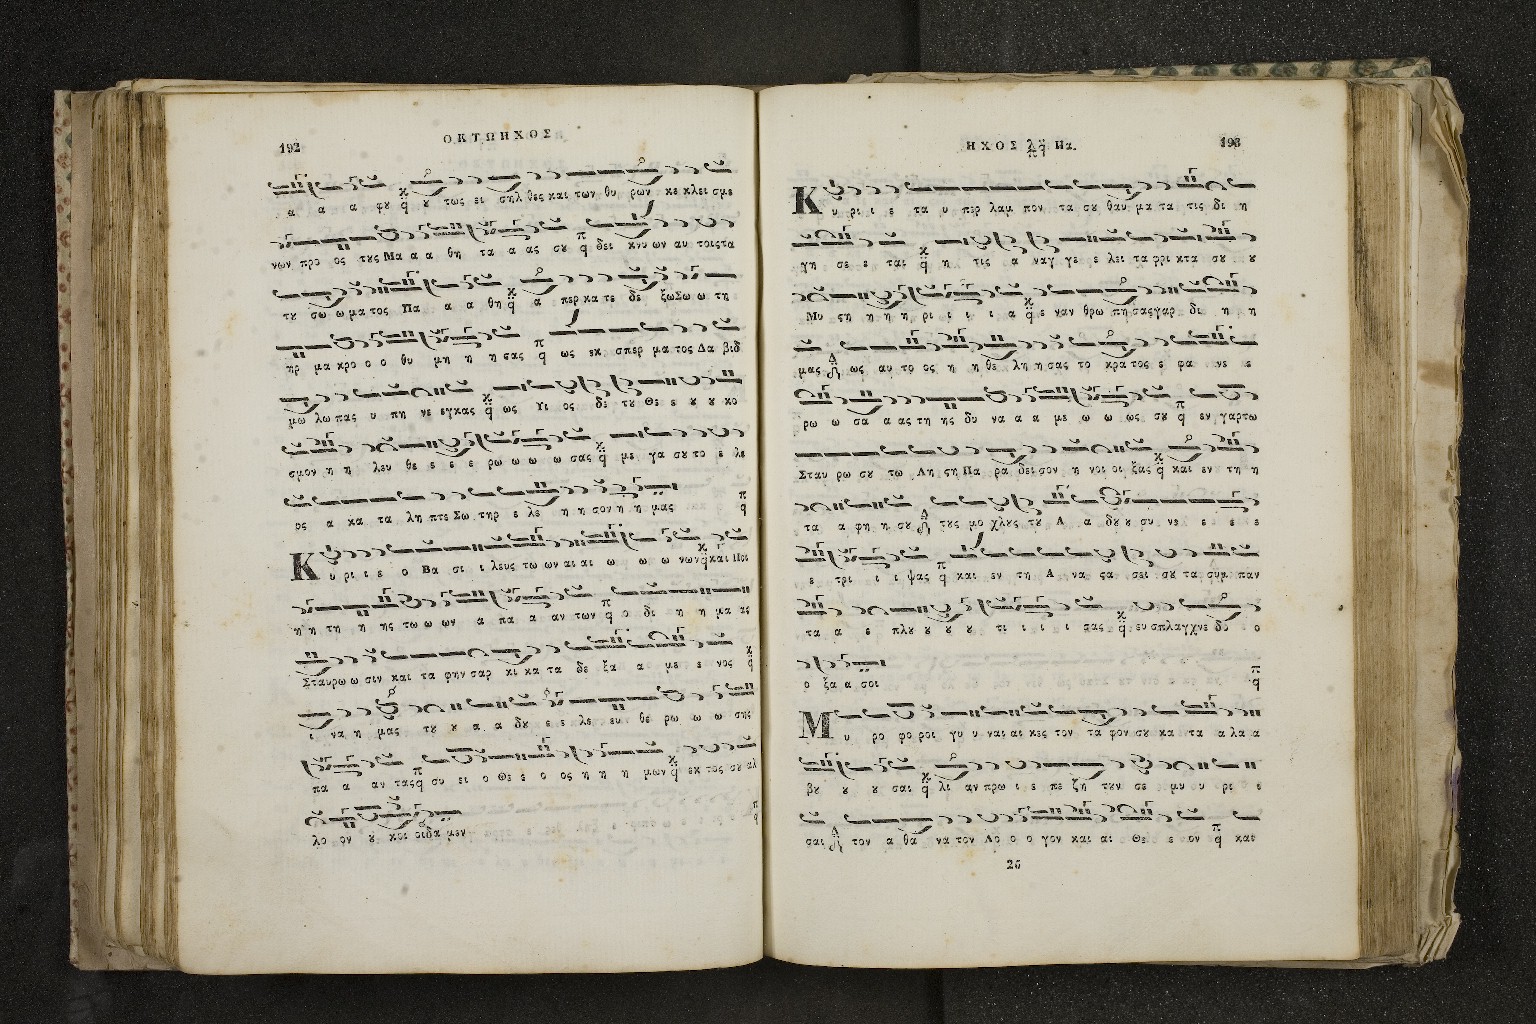 192
ΟΚΤΩΗΧΟΣ
α α α φυ ου τως ει σηλ θες και των θυ ρων κε κλει σμε
νων προ ος τους Μα α α θη τα α ας σου δει κνυ ων αυ τοις τα
του σω ω μα τος Πα α α θη α περ κα τε δε ξω Σω ω τη
ηρ μα κρο ο ο θυ μη η η σας ως εκ σπερ μα τος Δα βιδ
μω λω πας υ πη νε εγκας ως Υι ος δε του Θε ε ου ου κο
σμον η η λευ θε ε ε ε ρω ω ω ω σας με γα σου το ε λε
ος α κα τα λη πτε Σω τηρ ε λε η η σον η η μας
Κυ ρι ι ε ο Βα σι ι λευς τω ων αι αι ω ω ω νων και Ποι
η η τη η ης τω ω ων α πα α αν των ο δι η η μα ας
Σταυρω ω σιν και τα φην σαρ κι κα τα δε ξα α με ε νος
ι να η μας του ου α α δου ε ε λε ευ θε ρω ω ω σης
πα α αν τας συ ει ο Θε ε ο ος η η η μων εκ τος σου αλ
λο ον ου κοι οιδα μεν
ΗΧΟΣ Πα.
193
Κυ ρι ι ε τα υ περ λαμ πον τα σου θαυ μα τα τις δι η
γη σε ε ται η τις α ναγ γε ε λει τα φρι κτα σου ου
Μυ ςη η η η ρι ι ι ι α ε ναν θρω πη σας γαρ δι η η
μας ως αυ το ος η η θε λη η σας το κρα τος ε φα νε ε
ρω ω σα α ας τη ης δυ να α α με ω ω ως σου εν γαρ τω
Σταυ ρω σου τω Λη ςη Πα ρα δει σον η νοι οι ξας και εν τη η
τα α φη η σου τους μο χλους του Α α δου ου συ νε ε ε ε
ε τρι ι ι ψας και εν τη Α να ςα σει σου τα συμ παν
τα α ε πλου ου ου ου τι ι ι ι σας ευ σπλαγχνε δο ο
ο ξα α σοι
Μυ ρο φο ροι γυ υ ναι αι κες τον τα φον σου κα τα α λα α
βου ου ου σαι λι αν πρω ι ε πε ζη τουν σε μυ υ ρι ε
σαι τον α θα να τον Λο ο ο γον και αι Θε ε ον και
25